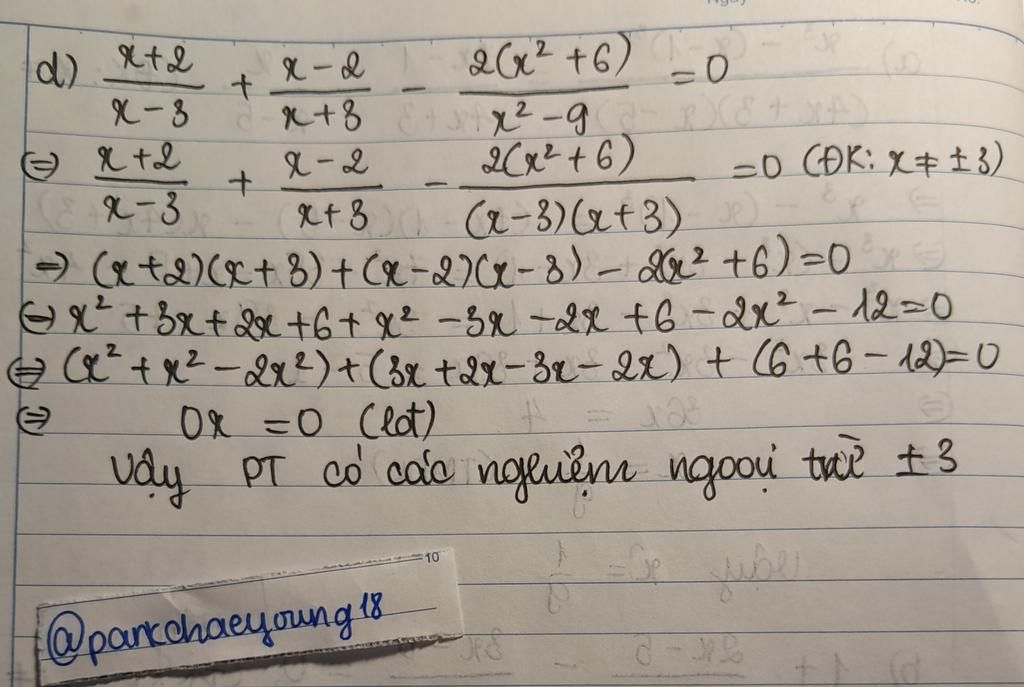 d) \frac{x+2}{x-3} + \frac{x-2}{x+3} - \frac{2(x² + 6)}{x² - 9} = 0
⇔ \frac{x+2}{x-3} + \frac{x-2}{x+3} - \frac{2(x² + 6)}{(x-3)(x+3)} = 0 (ĐK: x ≠ ±3)
⇒ (x+2)(x+3) + (x-2)(x-3) - 2(x² + 6) = 0
⇔ x² + 3x + 2x + 6 + x² - 3x - 2x + 6 - 2x² - 12 = 0
⇔ (x² + x² - 2x²) + (3x + 2x - 3x - 2x) + (6 + 6 - 12) = 0
⇔ 0x = 0 (lđt)
Vậy PT có các nghiệm ngoại trừ ±3
10
@parkchaeyoung18